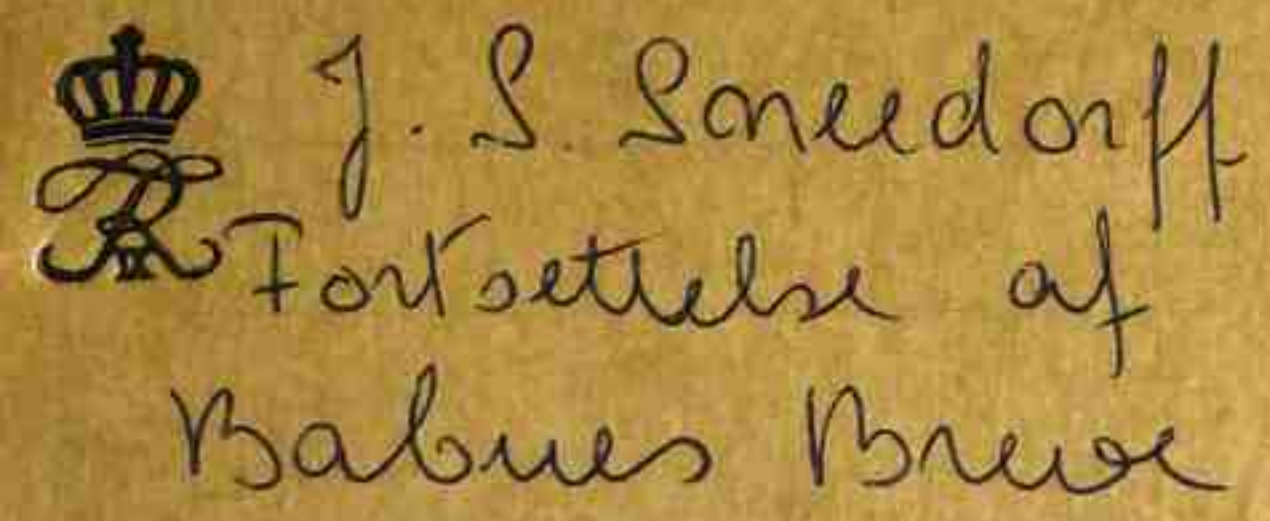 J. S. Sneedorff
Fortsettelse af
Babues Breve